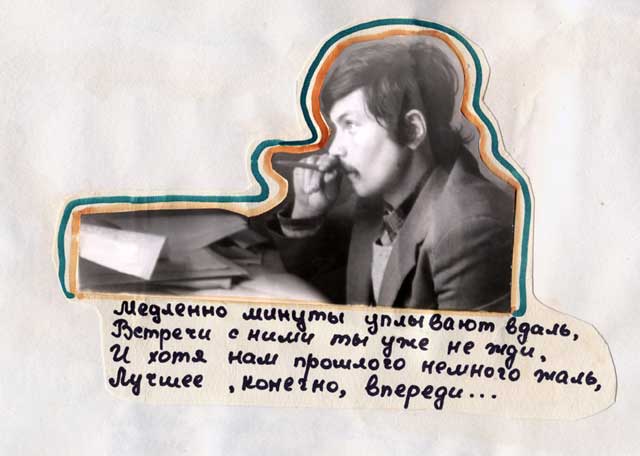 Медленно минуты уплывают вдаль,
Встречи с ними ты уже не жди,
И хотя нам прошлого немного жаль,
Лучшее , конечно, впереди...